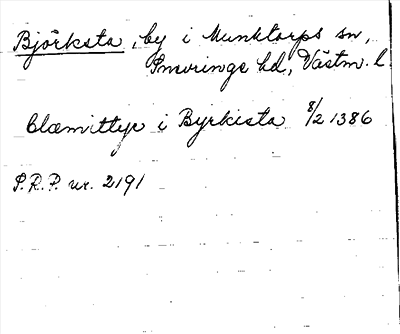 Björksta, by i Munktorps sn,
Snevringe hd, Västm. l.
Clæmittye i Byrkista 8/2 1386
S.R.P. nr. 2191